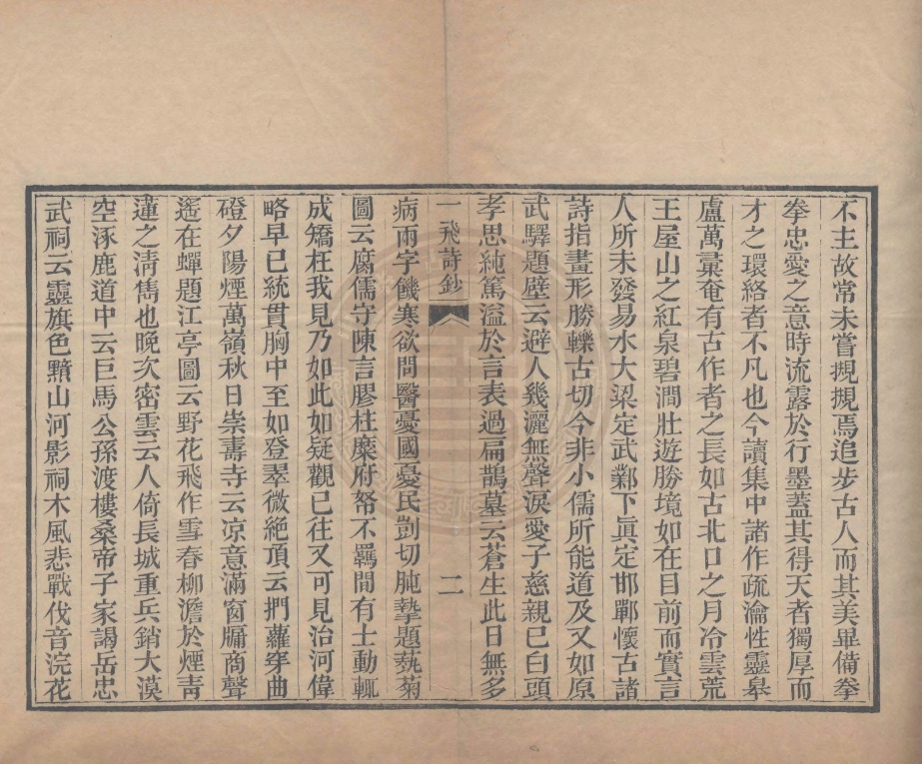 不主故常未嘗規規焉追步古人而其美畢備拳
拳忠愛之意時流露於行墨蓋其得天者獨厚而
才之環絡者不凡也今讀集中諸作疏瀹性靈皋
盧萬彙奄有古作者之長如古北口之月冷雲荒
王屋山之紅泉碧澗壯遊勝境如在目前而實言
人所未發易水大梁定武鄴下眞定邯鄲懷古諸
詩指畫形勝轢古切今非小儒所能道及又如原
武驛題壁云避人幾灑無聲淚愛子慈親已白頭
孝思純篤溢於言表過扁鵲墓云蒼生此日無多
一飛詩鈔
二
病雨字饑寒欲問醫憂國憂民剴切肫摯題蓺菊
圖云腐儒守陳言膠柱糜府帑不羈間有士動輒
成矯枉我見乃如此如疑觀已往又可見治河偉
略早已統貫胸中至如登翠微絶頂云捫蘿穿曲
磴夕陽煙萬嶺秋日崇壽寺云凉意滿窗牖商聲
遙在蟬題江亭圖云野花飛作雪春柳澹於煙靑
蓮之淸雋也晚次密雲云人倚長城重兵銷大漠
空涿鹿道中云巨馬公孫渡樓桑帝子家謁岳忠
武祠云靈旗色黯山河影祠木風悲戰伐音浣花